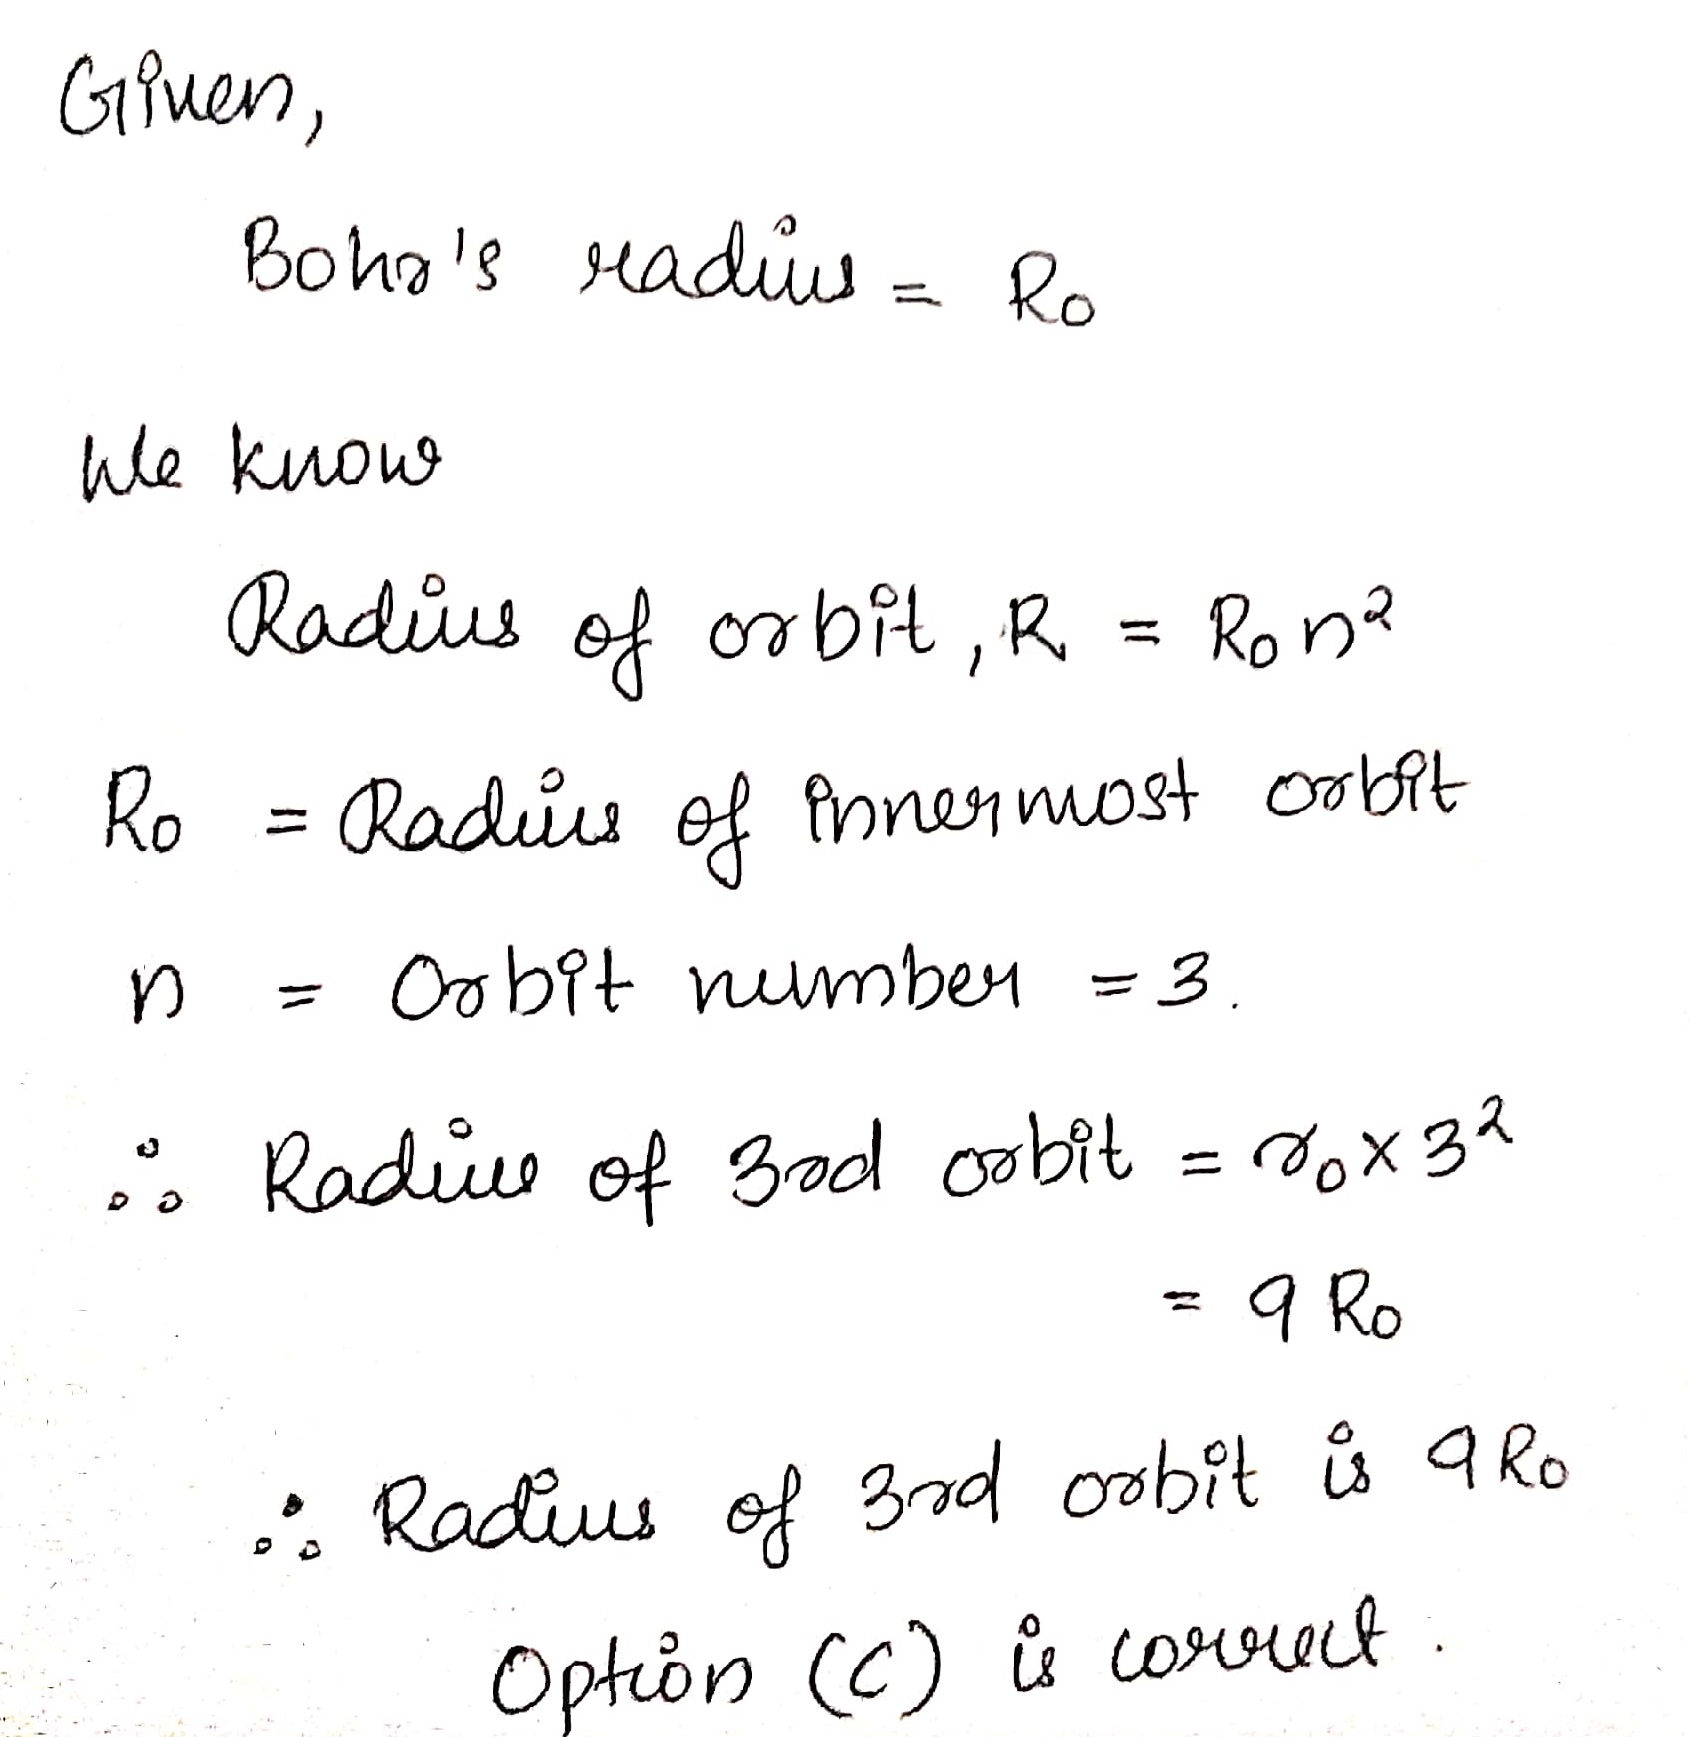 Given,
Bohr's radius = R₀
We know
Radius of orbit, R = R₀n²
R₀ = Radius of innermost orbit
n = Orbit number = 3.
∴ Radius of 3rd orbit = r₀ × 3²
= 9 R₀
∴ Radius of 3rd orbit is 9 R₀
Option (C) is correct.